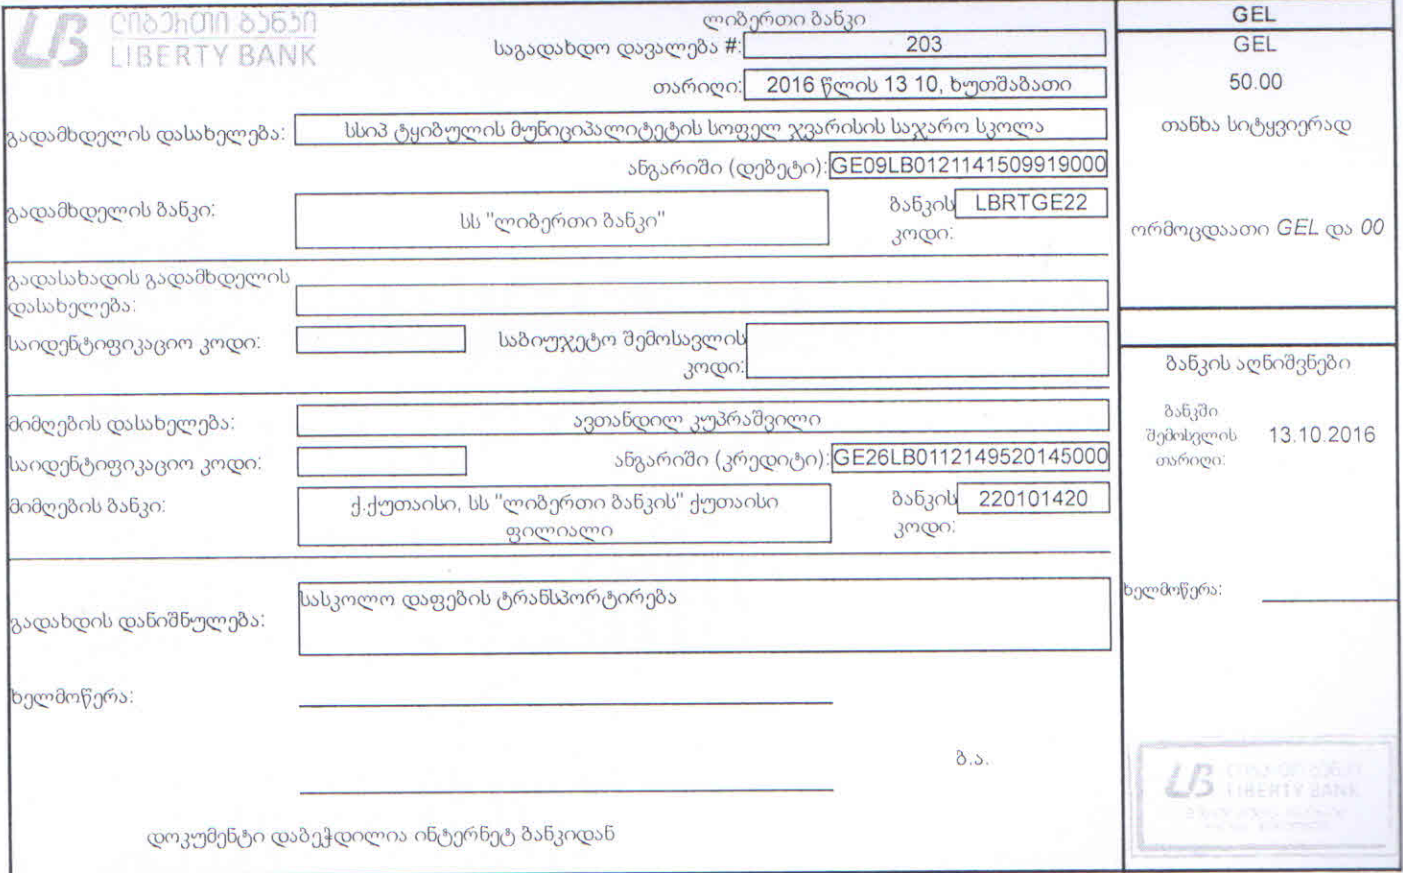 ლიბერთი ბანკი
LIBERTY BANK
ლიბერთი ბანკი
საგადახდო დავალება #: 203
თარიღი: 2016 წლის 13 10, ხუთშაბათი
გადამხდელის დასახელება: სსიპ ტყიბულის მუნიციპალიტეტის სოფელ ჯვარისის საჯარო სკოლა
ანგარიში (დებეტი): GE09LB0121141509919000
გადამხდელის ბანკი: სს "ლიბერთი ბანკი" ბანკის კოდი: LBRTGE22
გადასახადის გადამხდელის
დასახელება:
საიდენტიფიკაციო კოდი: საბიუჯეტო შემოსავლის
კოდი:
მიმღების დასახელება: ავთანდილ კუპრაშვილი
საიდენტიფიკაციო კოდი: ანგარიში (კრედიტი): GE26LB0112149520145000
მიმღების ბანკი: ქ.ქუთაისი, სს "ლიბერთი ბანკის" ქუთაისი
ფილიალი
ბანკის კოდი: 220101420
გადახდის დანიშნულება: სასკოლო დაფების ტრანსპორტირება
ხელმოწერა:
ბ.ა.
დოკუმენტი დაბეჭდილია ინტერნეტ ბანკიდან
GEL
GEL
50.00
თანხა სიტყვიერად
ორმოცდაათი GEL და 00
ბანკის აღნიშვნები
ბანკში
შემოსვლის
თარიღი: 13.10.2016
ხელმოწერა:
LIBERTY BANK